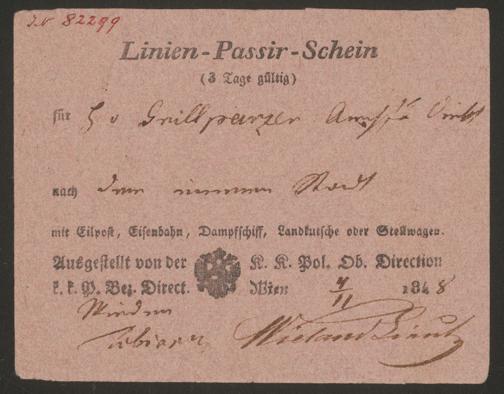 I.N 82299
Linien-Passir-Schein
(3 Tage gültig)
für H v Grillparzer
nach der inneren Stadt
mit Eilpost, Eisenbahn, Dampfschiff, Landkutsche oder Stellwagen.
Ausgestellt von der K. K. Pol. Ob. Direction
k. k. P. Bez. Direct. Wien 4/11 1848
Wieden